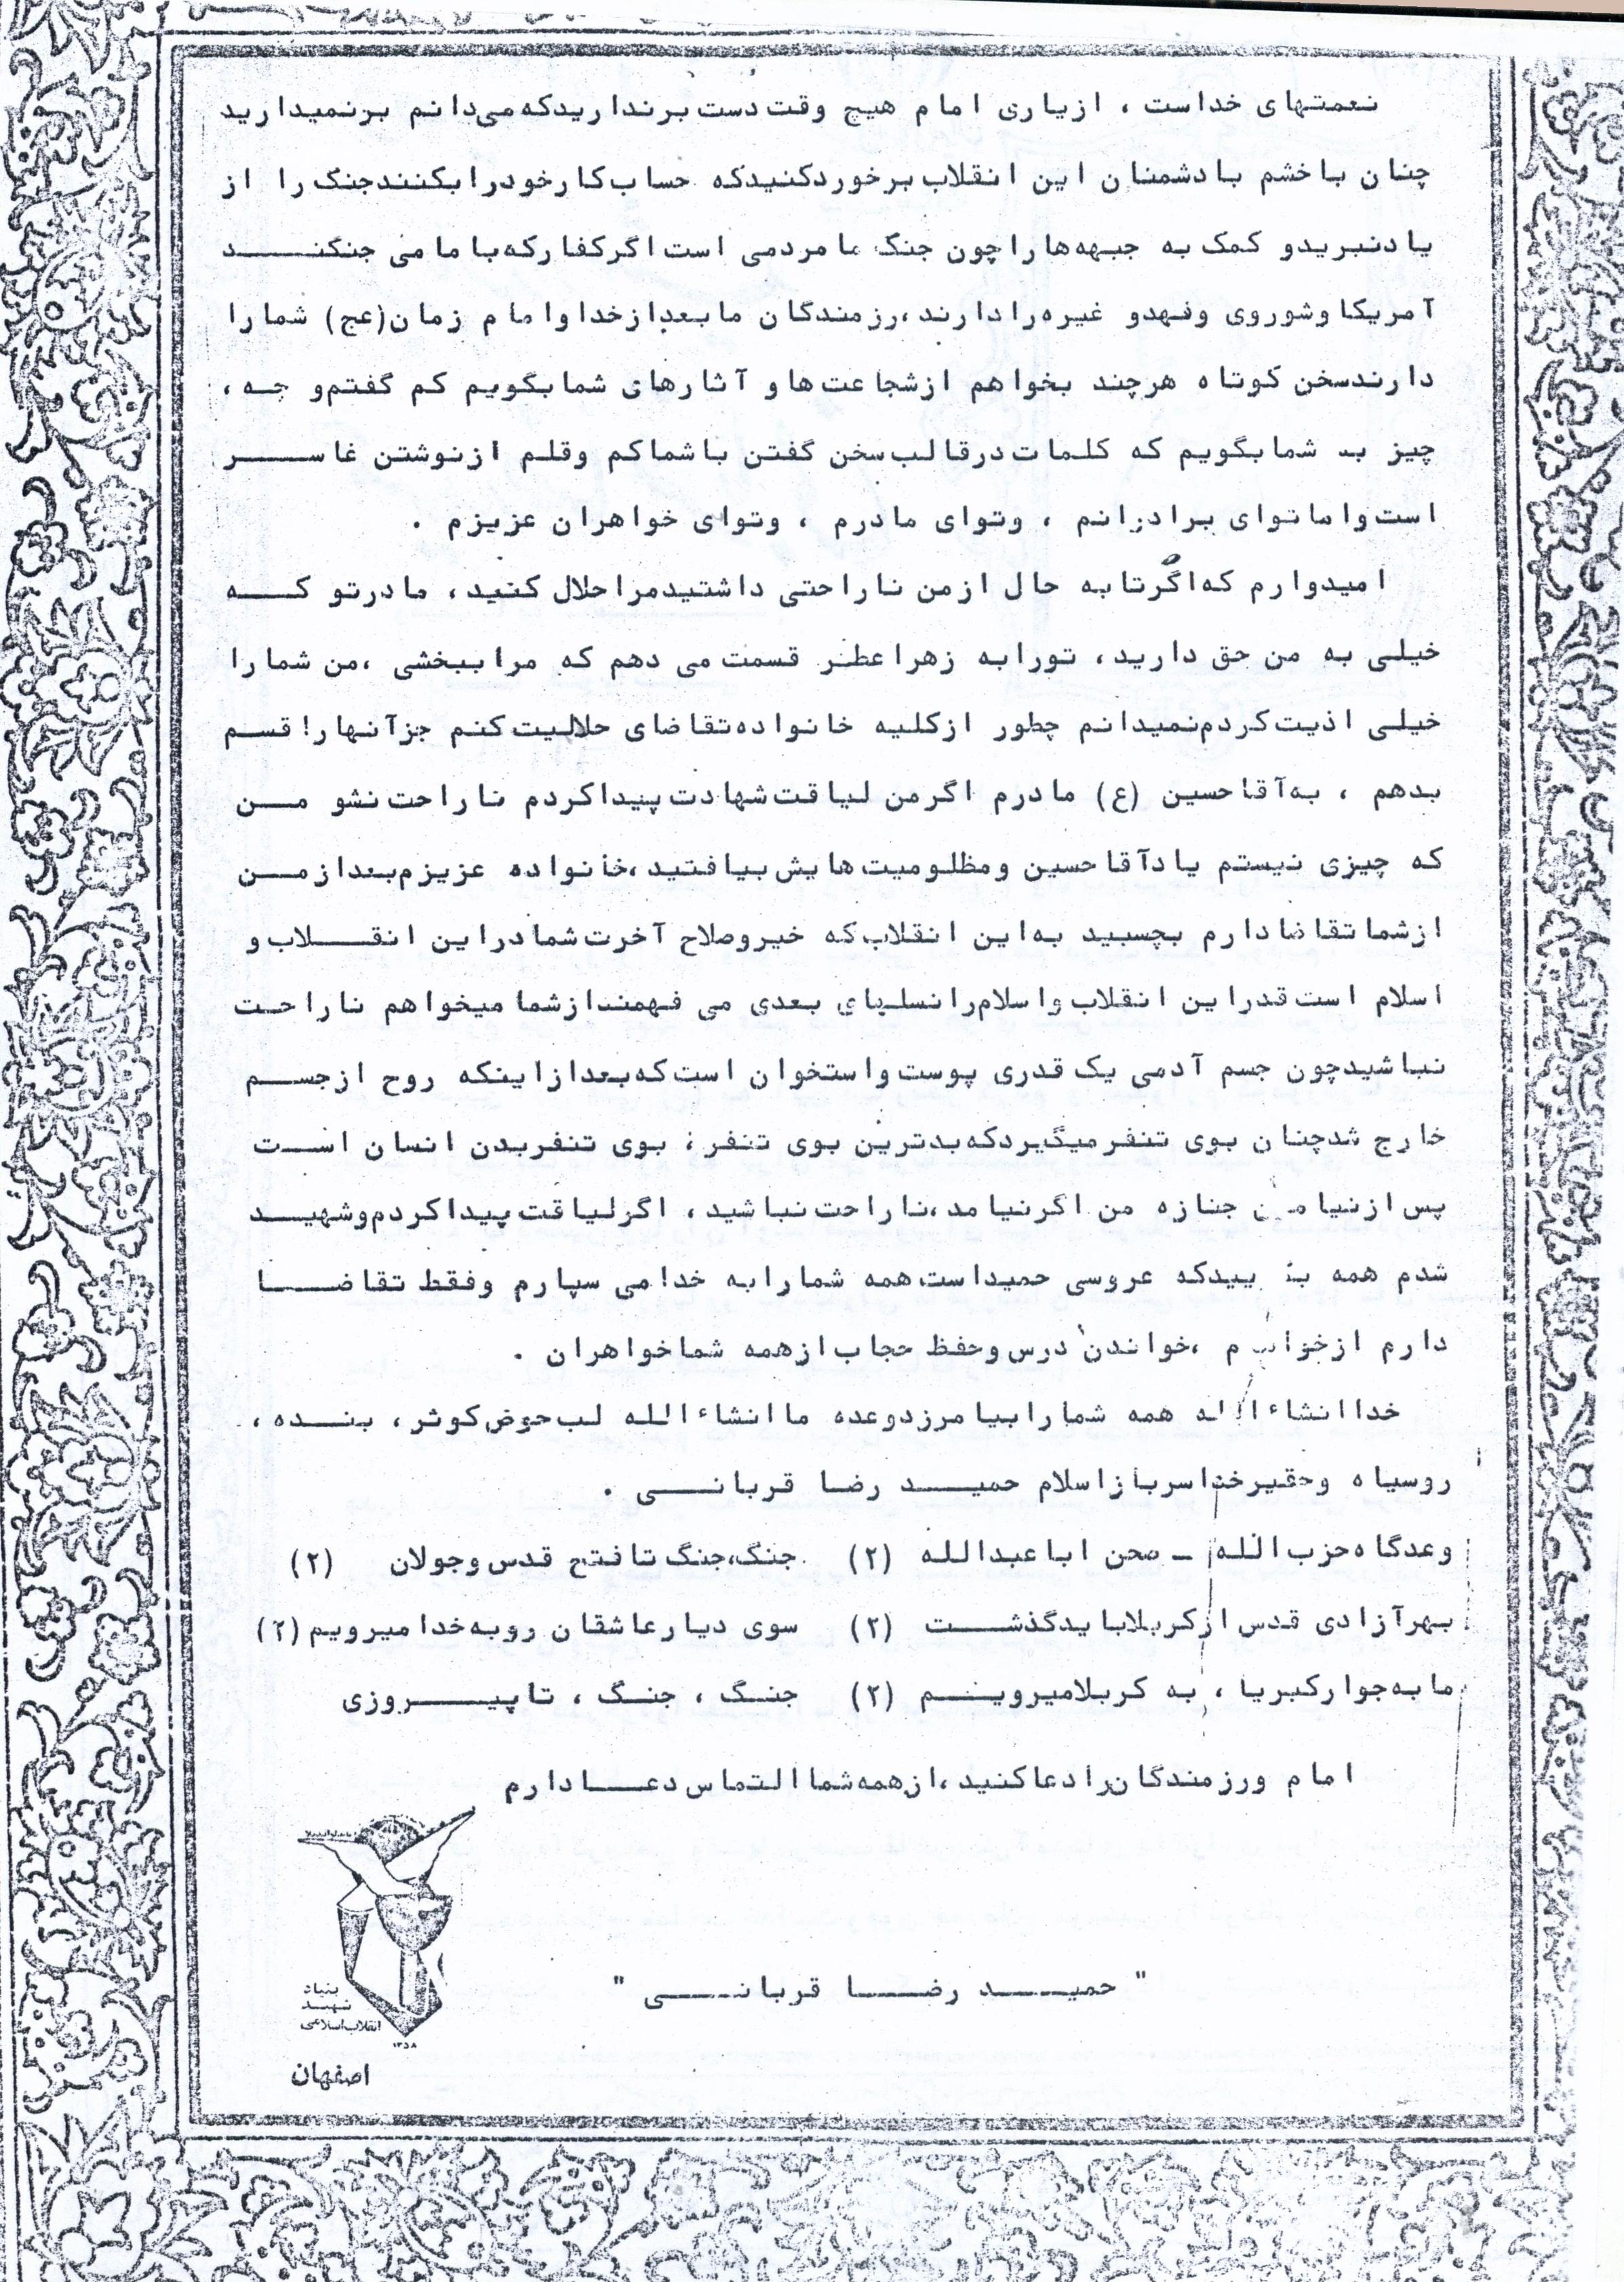 نعمتهای خداست ، ازیاری امام هیچ وقت دست برنداریدکه می‌دانم برنمیدارید
چنان باخشم بادشمنان این انقلاب برخوردکنیدکه حساب کارخودرابکنندجنگ را از
یادنبریدو کمک به جبهه‌هاراچون جنگ ما مردمی است اگرکفارکه‌با ما می جنگنــــد
آمریکا وشوروی وفهدو غیره‌رادارند ،رزمندگان مابعدازخدا وامام زمان(عج) شمارا
دارندسخن کوتاه هرچند بخواهم ازشجاعت‌ها و آثارهای شمابگویم کم گفتم‌و چـه ،
چیز به شمابگویم که کلمات درقالب سخن گفتن باشماکم وقلم ازنوشتن غاســـر
است‌وامانوای برادرانم ، وتوای مادرم ، وتوای خواهران عزیزم .
امیدوارم که‌اگرتابه حال ازمن ناراحتی داشتیدمراحلال کنید، مادرتو کـــه
خیلی به من حق دارید، تورابه زهرا عطـر قسمت می دهم که مراببخشی ،من شمارا
خیلی اذیت‌کردم‌نمیدانم چطور ازکلیه خانواده‌تقاضای حلالیت‌کنم جزآنهارا قسـم
بدهم ، به‌آقاحسین (ع) مادرم اگرمن لیاقت‌شهادت‌پیداکردم ناراحت‌نشو مــن
که چیزی نیستم یادآقا حسین ومظلومیت‌هایش‌بیافتید،خانواده عزیزم‌بعدازمــن
ازشما تقاضادارم بچسبید به‌این انقلاب‌که خیروصلاح آخرت‌شمادراین انقـــلاب‌و
اسلام است‌قدراین انقلاب‌واسلام‌رانسلهای بعدی می فهمندازشما میخواهم ناراحـت
نباشیدچون جسم آدمی یک قدری پوست‌واستخوان است‌که‌بعدازاینکه روح ازجســم
خارج شدچنان بوی تنفرمیگیردکه‌بدترین بوی تنفر، بوی تنفربدن انسان اســت
پس ازنیامدن جنازه من اگرنیامد،ناراحت‌نباشید، اگرلیاقت‌پیداکردم‌وشهیــد
شدم همه بگوییدکه عروسی حمیداست‌همه شمارابه خدامی سپارم وفقط تقاضــا
دارم ازخواهرم ،خواندن درس‌وحفظ حجاب‌ازهمه شماخواهران .
خداانشاءالله همه شمارابیامرزدوعده ماانشاءالله لب‌حوض‌کوثر، بنـــده ،
روسیاه وحقیرخداسربازاسلام حمیـــد رضا قربانـــی .
وعدگاه‌حزب‌الله - صحن اباعبدالله (۲) جنگ،جنگ تافتح قدس وجولان (۲)
بهرآزادی قدس ازکربلابایدگذشـــت (۲) سوی دیارعاشقان روبه‌خدا میرویم(۲)
مابه‌جوارکبریا ، به کربلامیرویـــم (۲) جنگ ، جنگ ، تاپیـــــروزی
امام ورزمندگان‌رادعاکنید ،ازهمه‌شماالتماس‌دعــادارم
" حمیـــد رضـــا قربانـــی "
بنیاد
شهید
انقلاب‌اسلامی
۱۳۵۸
اصفهان